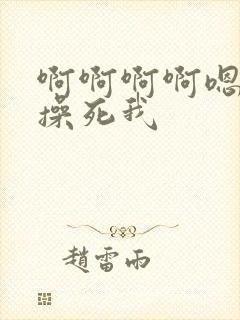 啊啊啊啊嗯
操死我
趙雷雨